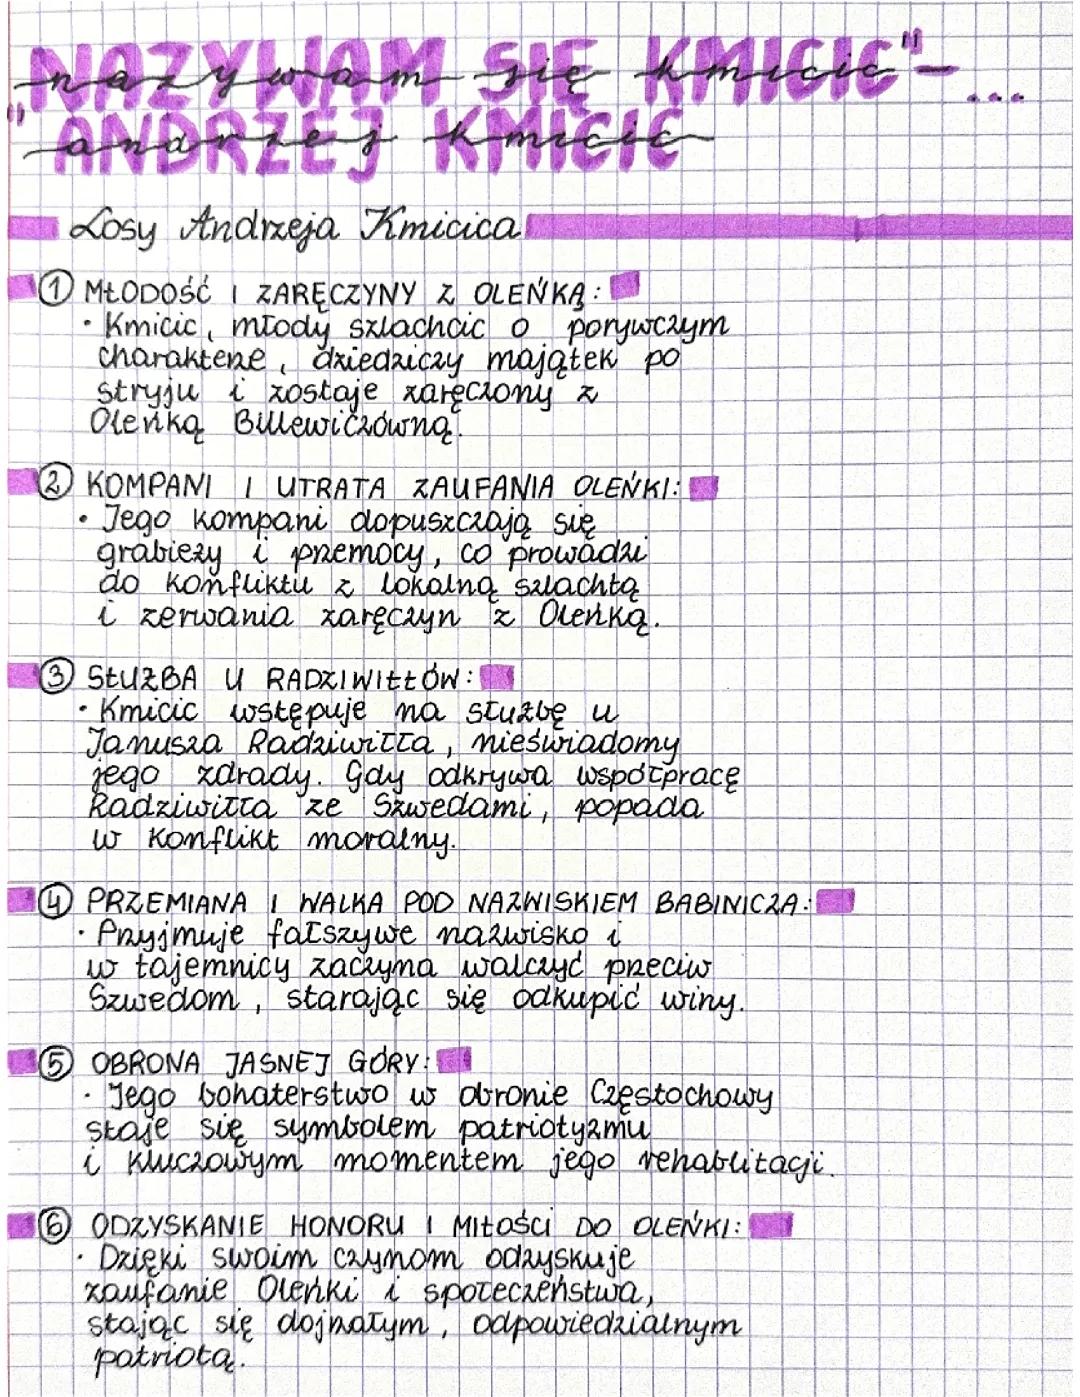 "NAZYWAM SIĘ KMICIC" – ...
nazywam się kmicic
"ANDRZEJ KMICIC
andrzej kmicic
Losy Andrzeja Kmicica
① MŁODOŚĆ I ZARĘCZYNY Z OLEŃKĄ:
• Kmicic, młody szlachcic o porywczym
charakterze, dziedziczy majątek po
stryju i zostaje zaręczony z
Oleńką Billewiczówną.
② KOMPANI I UTRATA ZAUFANIA OLEŃKI:
• Jego kompani dopuszczają się
grabieży i przemocy, co prowadzi
do konfliktu z lokalną szlachtą
i zerwania zaręczyn z Oleńką.
③ SŁUŻBA U RADZIWIŁŁÓW:
• Kmicic wstępuje na służbę u
Janusza Radziwiłła, nieświadomy
jego zdrady. Gdy odkrywa współpracę
Radziwiłła ze Szwedami, popada
w konflikt moralny.
④ PRZEMIANA I WALKA POD NAZWISKIEM BABINICZA:
• Przyjmuje fałszywe nazwisko i
w tajemnicy zaczyna walczyć przeciw
Szwedom, starając się odkupić winy.
⑤ OBRONA JASNEJ GÓRY:
• Jego bohaterstwo w obronie Częstochowy
staje się symbolem patriotyzmu
i kluczowym momentem jego rehablitacji.
⑥ ODZYSKANIE HONORU I MIŁOŚCI DO OLEŃKI:
• Dzięki swoim czynom odzyskuje
zaufanie Oleńki i społeczeństwa,
stając się dojrzałym, odpowiedzialnym
patriotą.